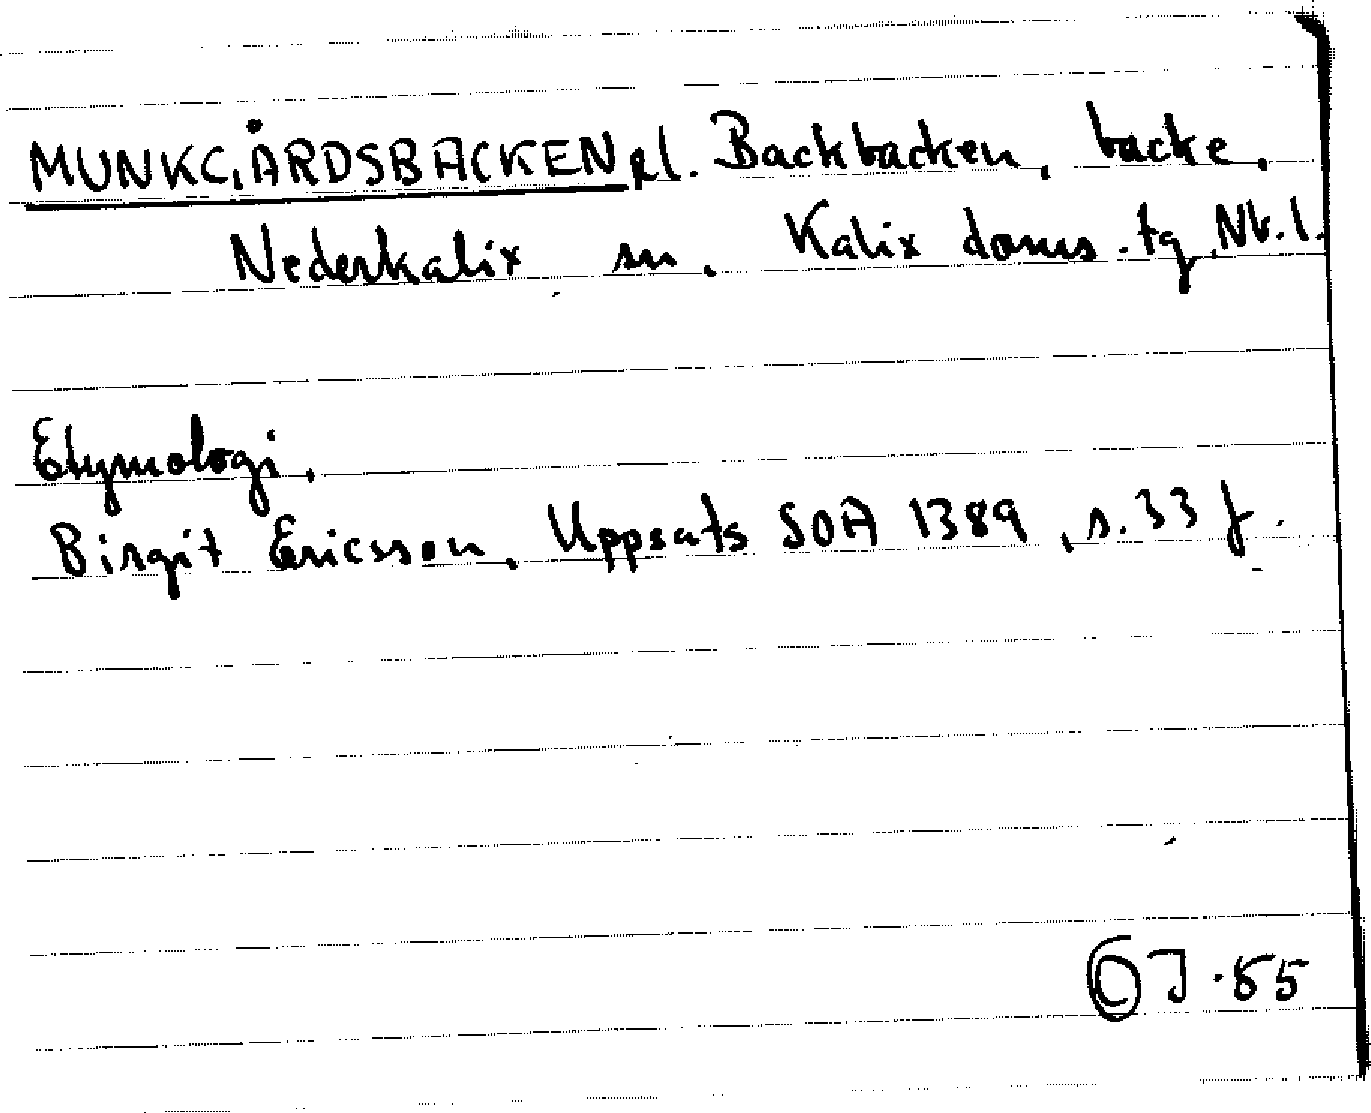 MUNKGÅRDSBACKEN el. Backbacken, backe,
Nederkalix sn, Kalix doms. tg, Nb. l.
Etymologi.
Birgit Ericsson, Uppsats SOA 1389, s. 33 f.